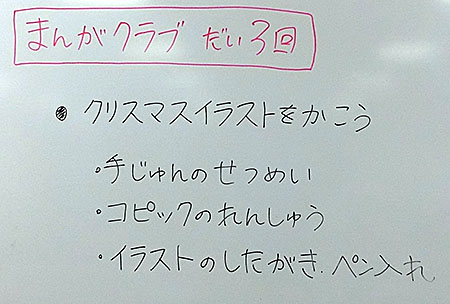 まんがクラブ だい3回
● クリスマスイラストをかこう
・手じゅんのせつめい
・コピックのれんしゅう
・イラストのしたがき、ペン入れ